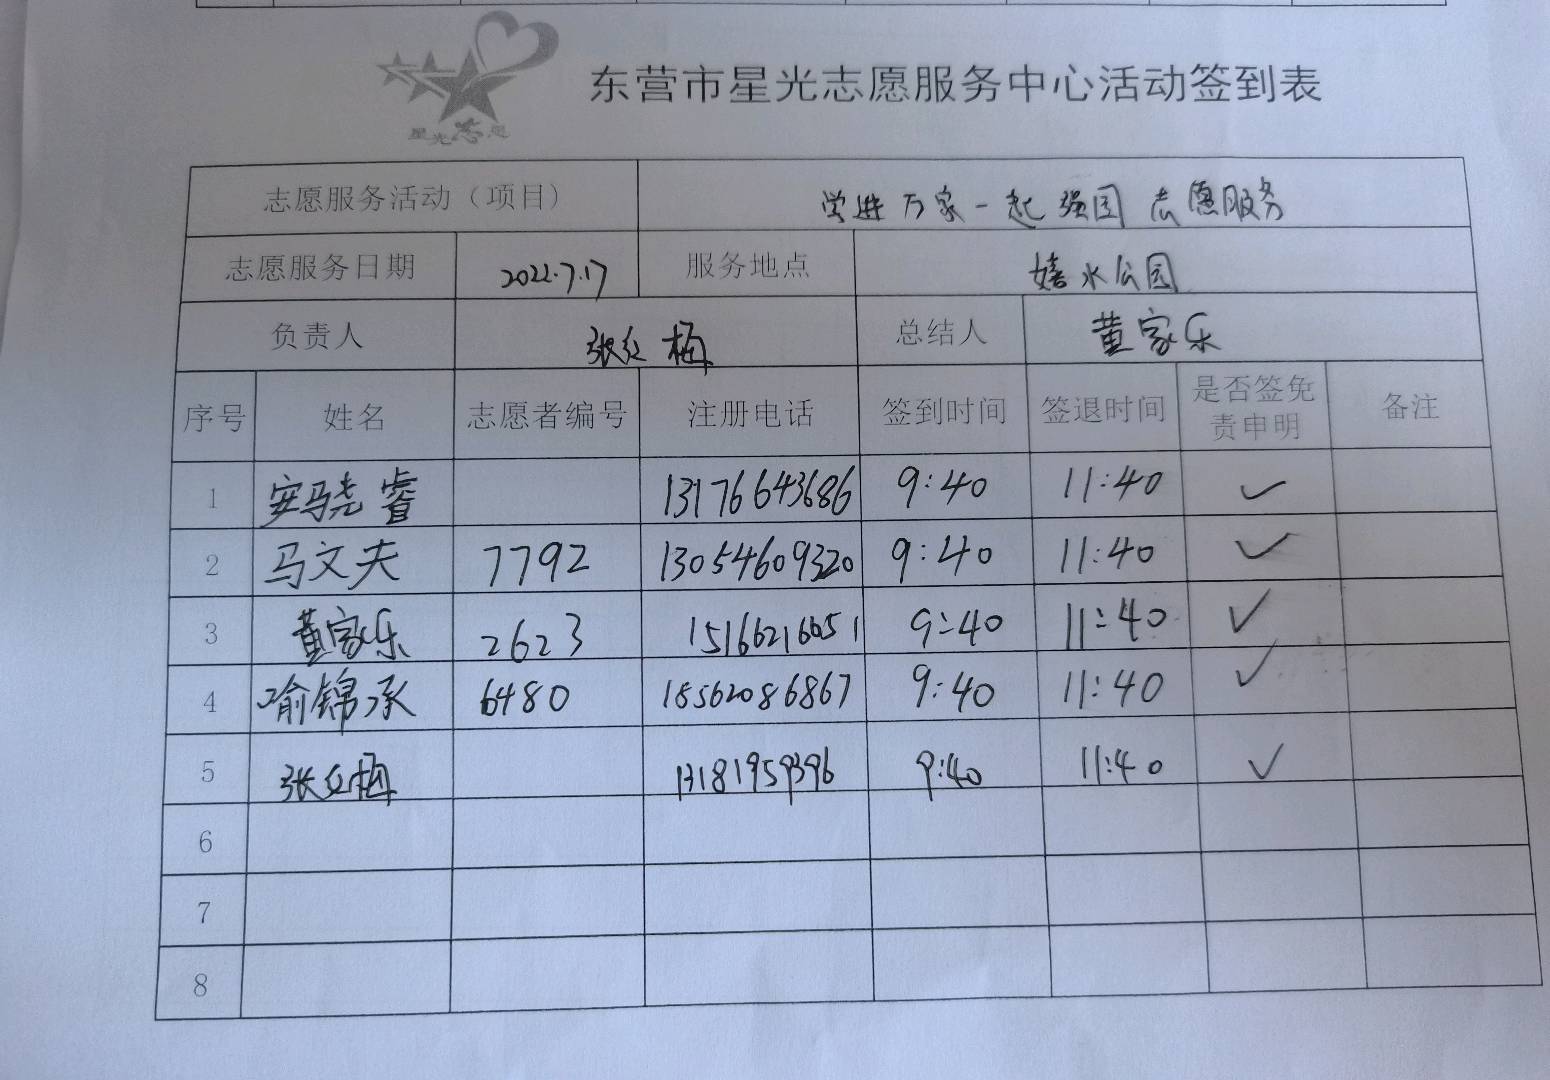 星光志愿
东营市星光志愿服务中心活动签到表
志愿服务活动（项目） 学进万家一起强国 志愿服务
志愿服务日期 2022.7.17 服务地点 嬉水公园
负责人 张红梅 总结人 董家乐
序号 姓名 志愿者编号 注册电话 签到时间 签退时间 是否签免责申明 备注
1 安骁睿 13176643686 9:40 11:40 ✓
2 马文夫 7792 13054609320 9:40 11:40 ✓
3 董家乐 2623 9:40 11:40 ✓
4 喻锦承 6480 18562086867 9:40 11:40 ✓
5 张红梅 13181959396 9:40 11:40 ✓
6
7
8